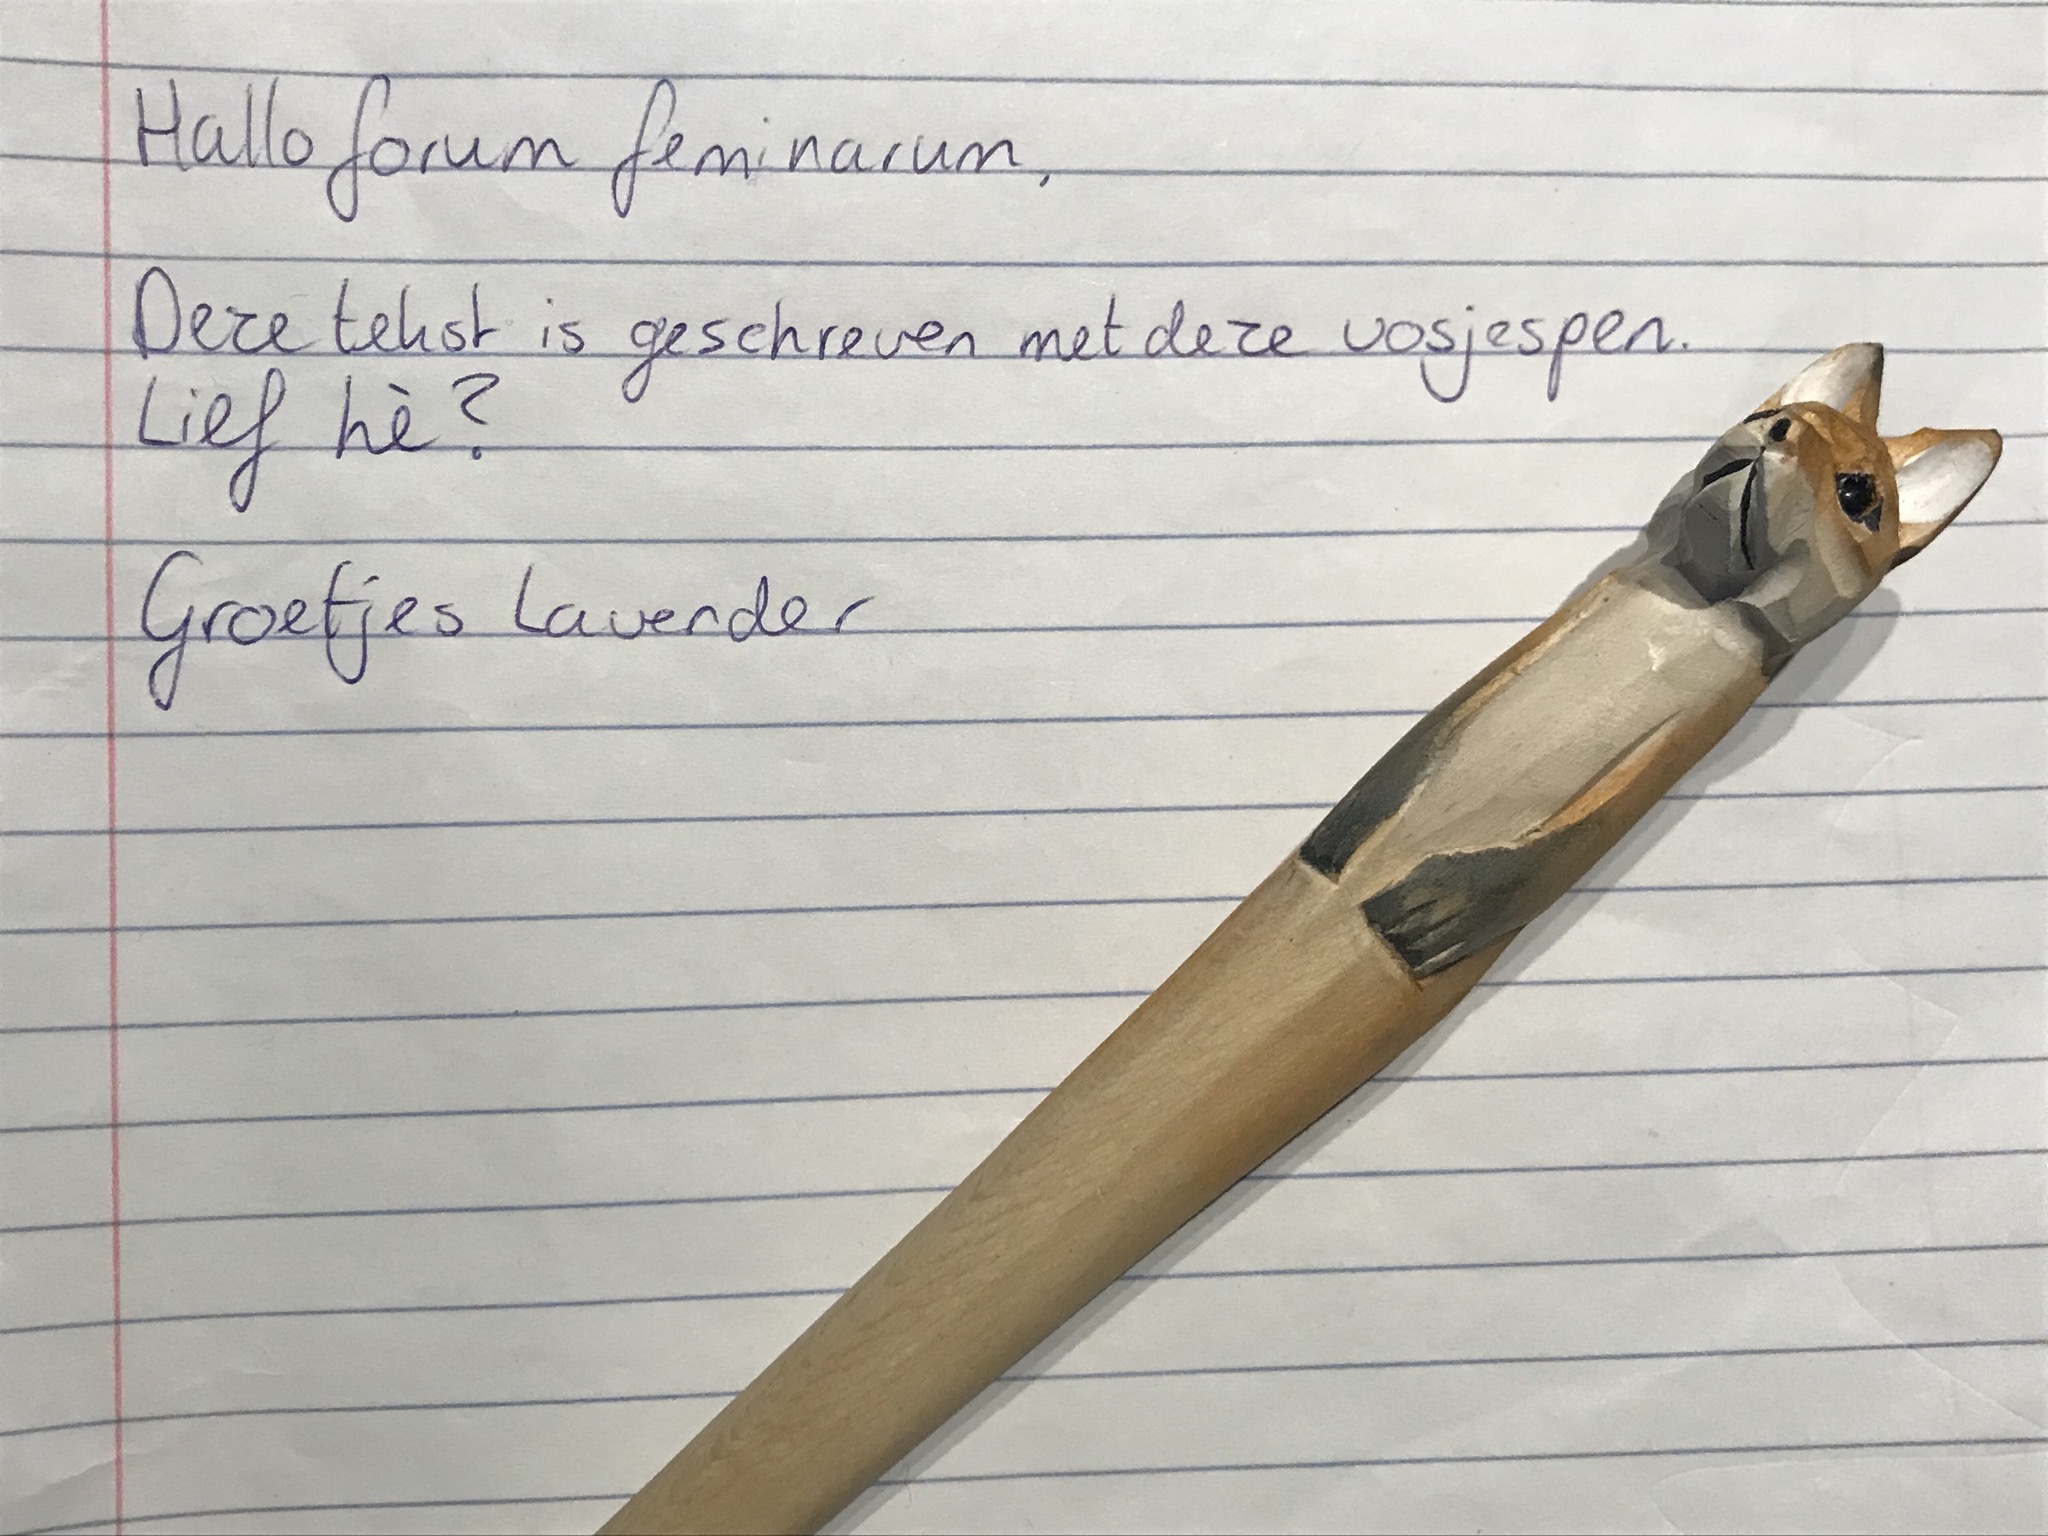 Hallo forum feminarum,
Deze tekst is geschreven met deze vosjespen.
Lief hè?
Groetjes Lavender